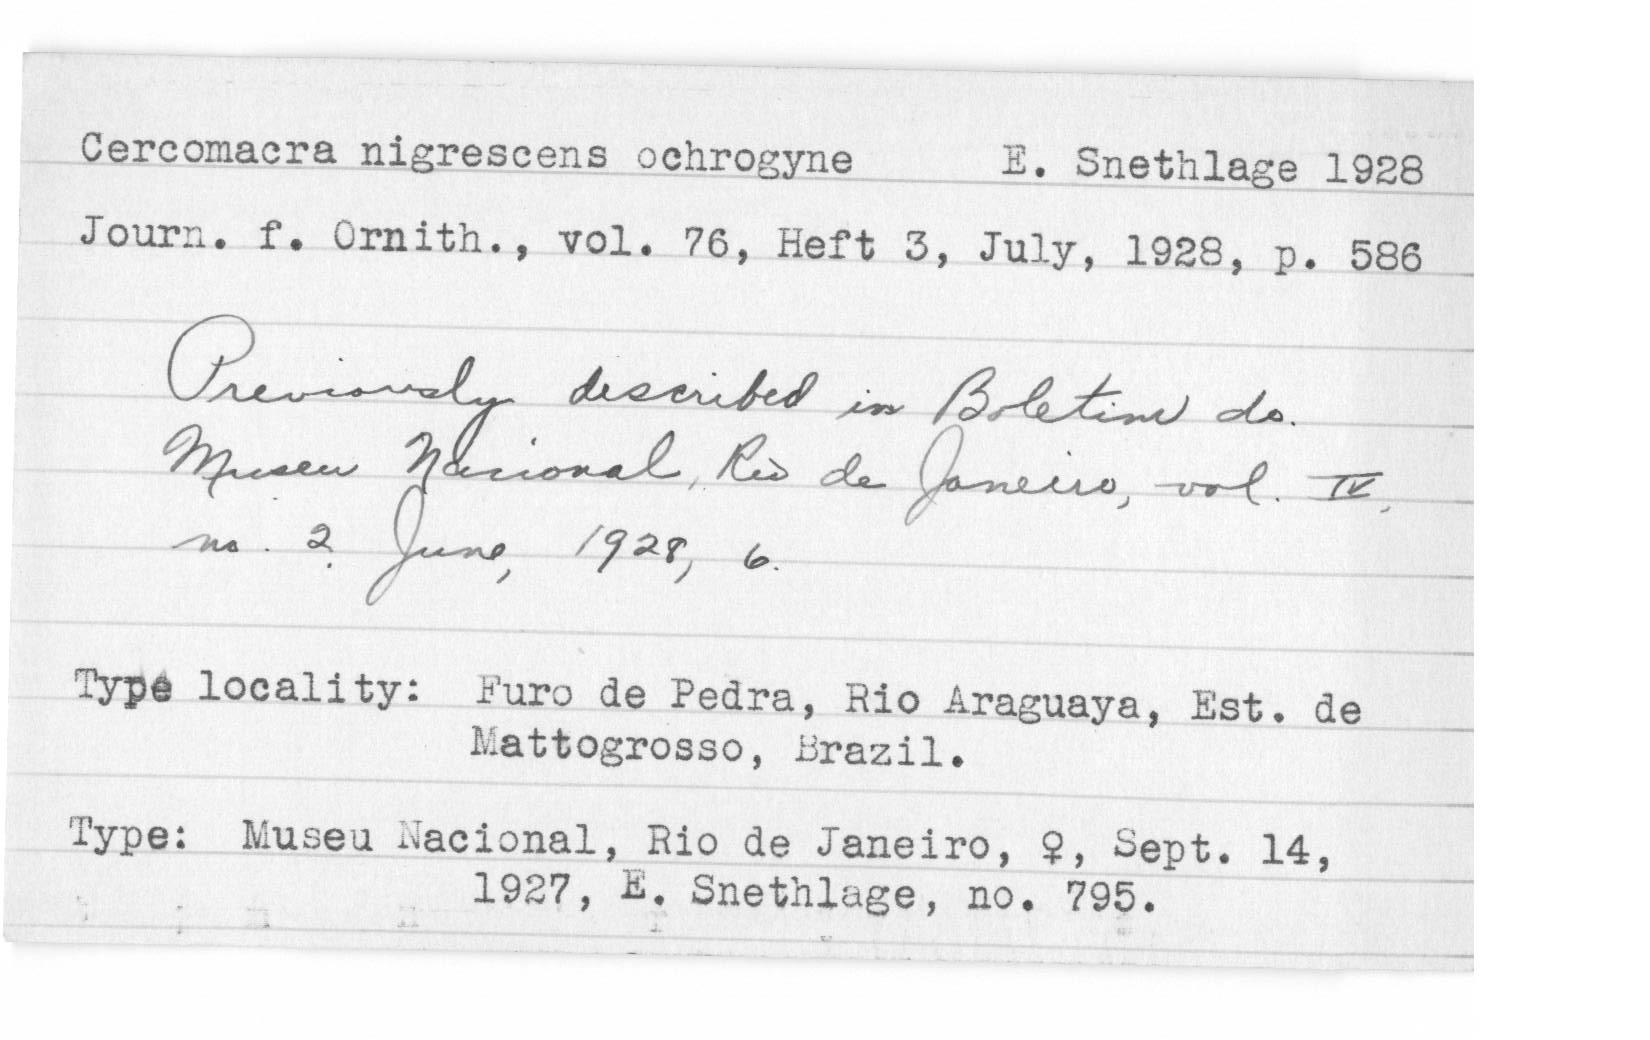 Cercomacra nigrescens ochrogyne E. Snethlage 1928
Journ. f. Ornith., vol. 76, Heft 3, July, 1928, p. 586
Previously described in Boletim do.
Museu Nacional, Rio de Janeiro, vol. IV,
no. 2. June, 1928, 6.
Type locality: Furo de Pedra, Rio Araguaya, Est. de
Mattogrosso, Brazil.
Type: Museu Nacional, Rio de Janeiro, ♀, Sept. 14,
1927, E. Snethlage, no. 795.